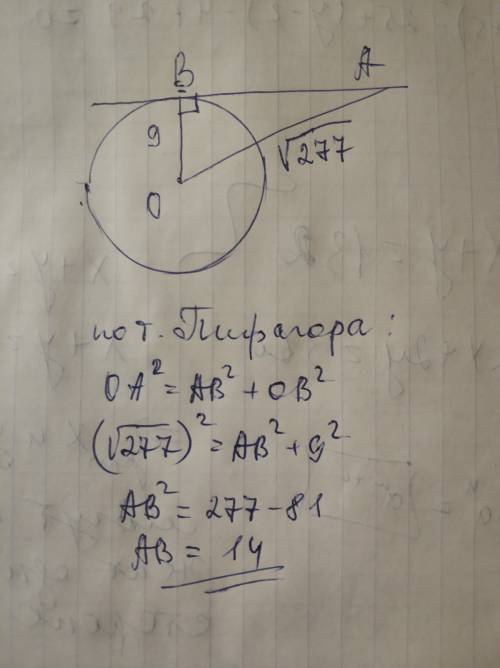 B
A
9
√277
O
по т. Пифагора:
OA² = AB² + OB²
(√277)² = AB² + 9²
AB² = 277 - 81
AB = 14